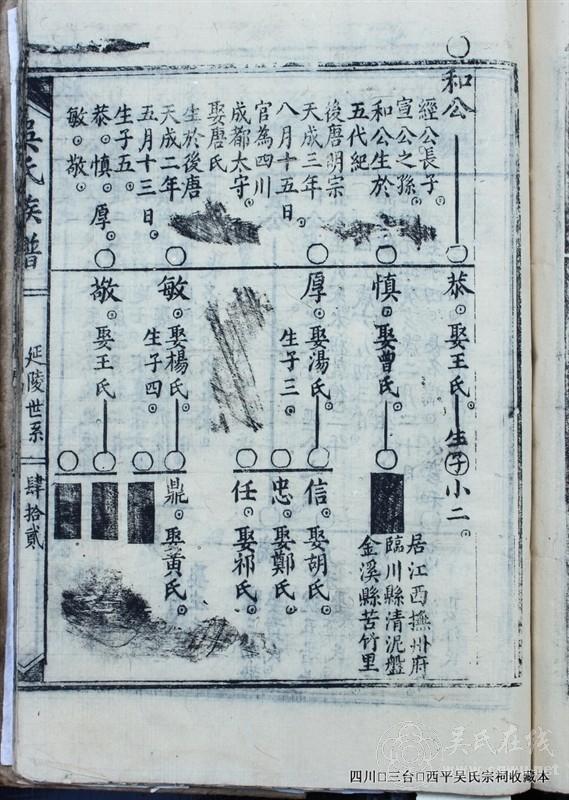 和公
經公長子。
宣公之孫。
和公生於
五代紀
後唐明宗
天成三年
八月十五日。
官為四川
成都太守。
娶唐氏
生於後唐
天成二年
五月十三日。
生子五。
恭。慎。厚。
敏。敬。
恭。娶王氏。生子小二。
慎。娶曾氏。
厚。娶湯氏。
生子三。
敏。娶楊氏。
生子四。
敬。娶王氏
居江西撫州府
臨川縣清泥盤
金溪縣苦竹里
信。娶胡氏。
忠。娶鄭氏。
任。娶祁氏。
鼎。娶黃氏。
吳氏族譜
延陵世系
肆拾貳
吴氏在线
四川□三台□西平吴氏宗祠收藏本